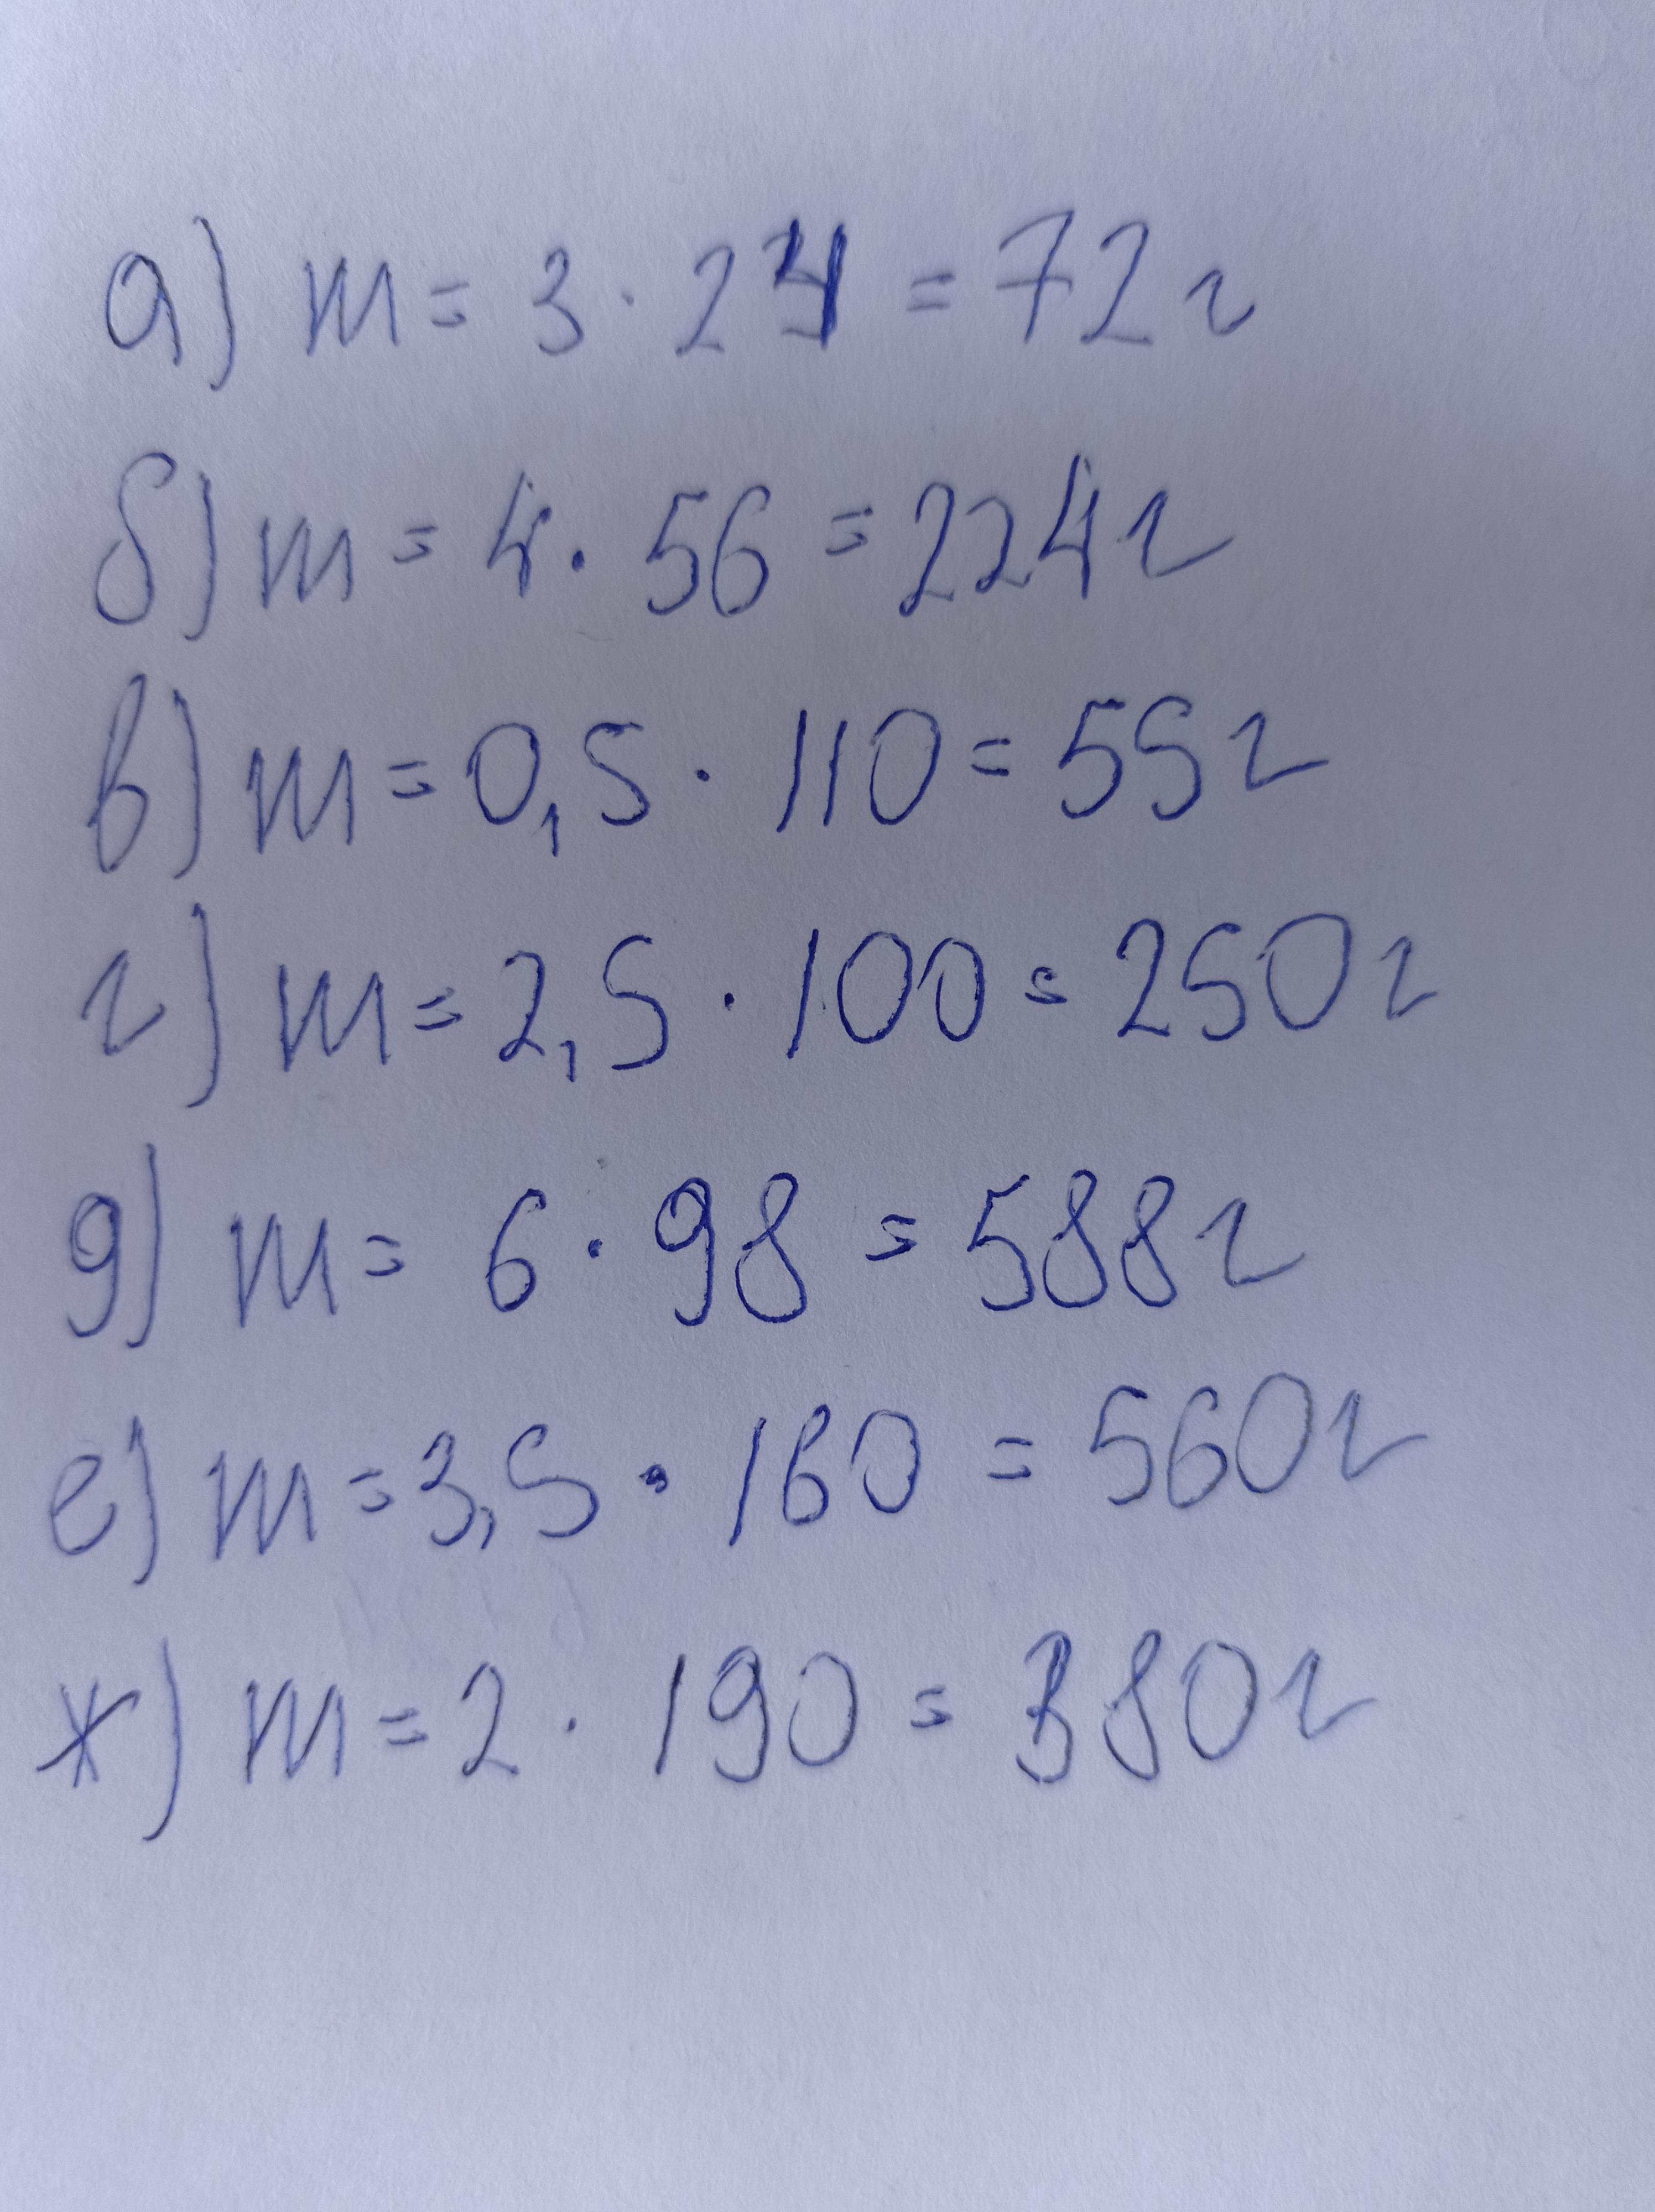 а) m = 3 · 24 = 72 г
б) m = 4 · 56 = 224 г
в) m = 0,5 · 110 = 55 г
г) m = 2,5 · 100 = 250 г
д) m = 6 · 98 = 588 г
е) m = 3,5 · 160 = 560 г
ж) m = 2 · 190 = 380 г